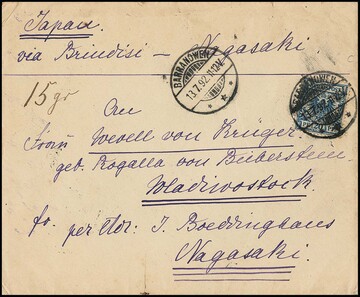 Japan
via Brindisi - Nagasaki
BARRANOWEN
13.7.92. 11-12 V.
15 gr
An
Frau Wevell von Krüger
geb. Rogalla von Bieberstein
Wladiwostock.
fr. per Adr: J. Boeddinghaus
Nagasaki.